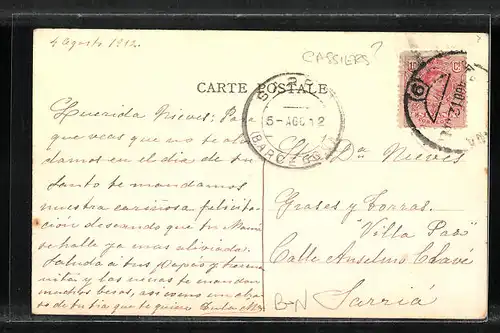 4 agosto 1912.
CASSIERS?
CARTE POSTALE
5-AGO 12
(BARCELONA)
Querida Nieves: Para
que veas que no te olvi-
damos en el dia de tu
Santo te mandamos
nuestra cariñosa felicita-
ción deseando que tu Mamá
se halle ya mas aliviada.
Saluda a tus Papás y
y las niñas te mandan
muchos besos,
de tu tia que te quiere
Sta Da Nieves
Grases y Torras.
"Villa Paz"
Calle Anselmo Clavé
Sarriá
B-N